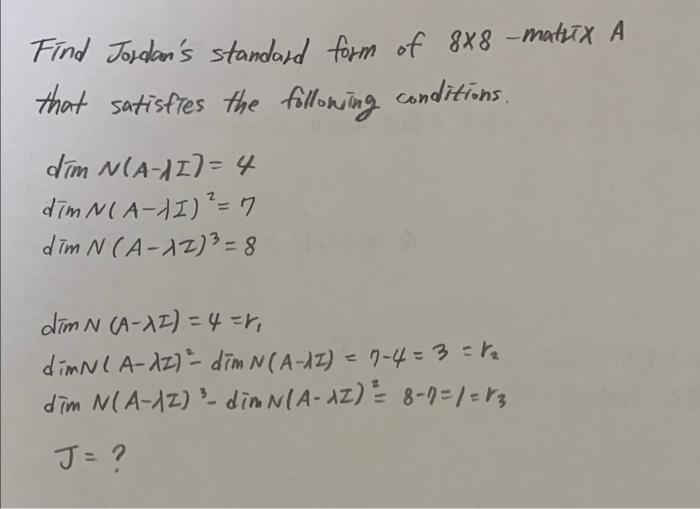 Find Jordan's standard form of 8x8 -matrix A
that satisfies the following conditions.
dim N(A-λI) = 4
dim N(A-λI)² = 7
dim N(A-λI)³ = 8
dim N(A-λI) = 4 = r₁
dim N(A-λI)² - dim N(A-λI) = 7-4 = 3 = r₂
dim N(A-λI)³ - dim N(A-λI)² = 8-7 = 1 = r₃
J = ?